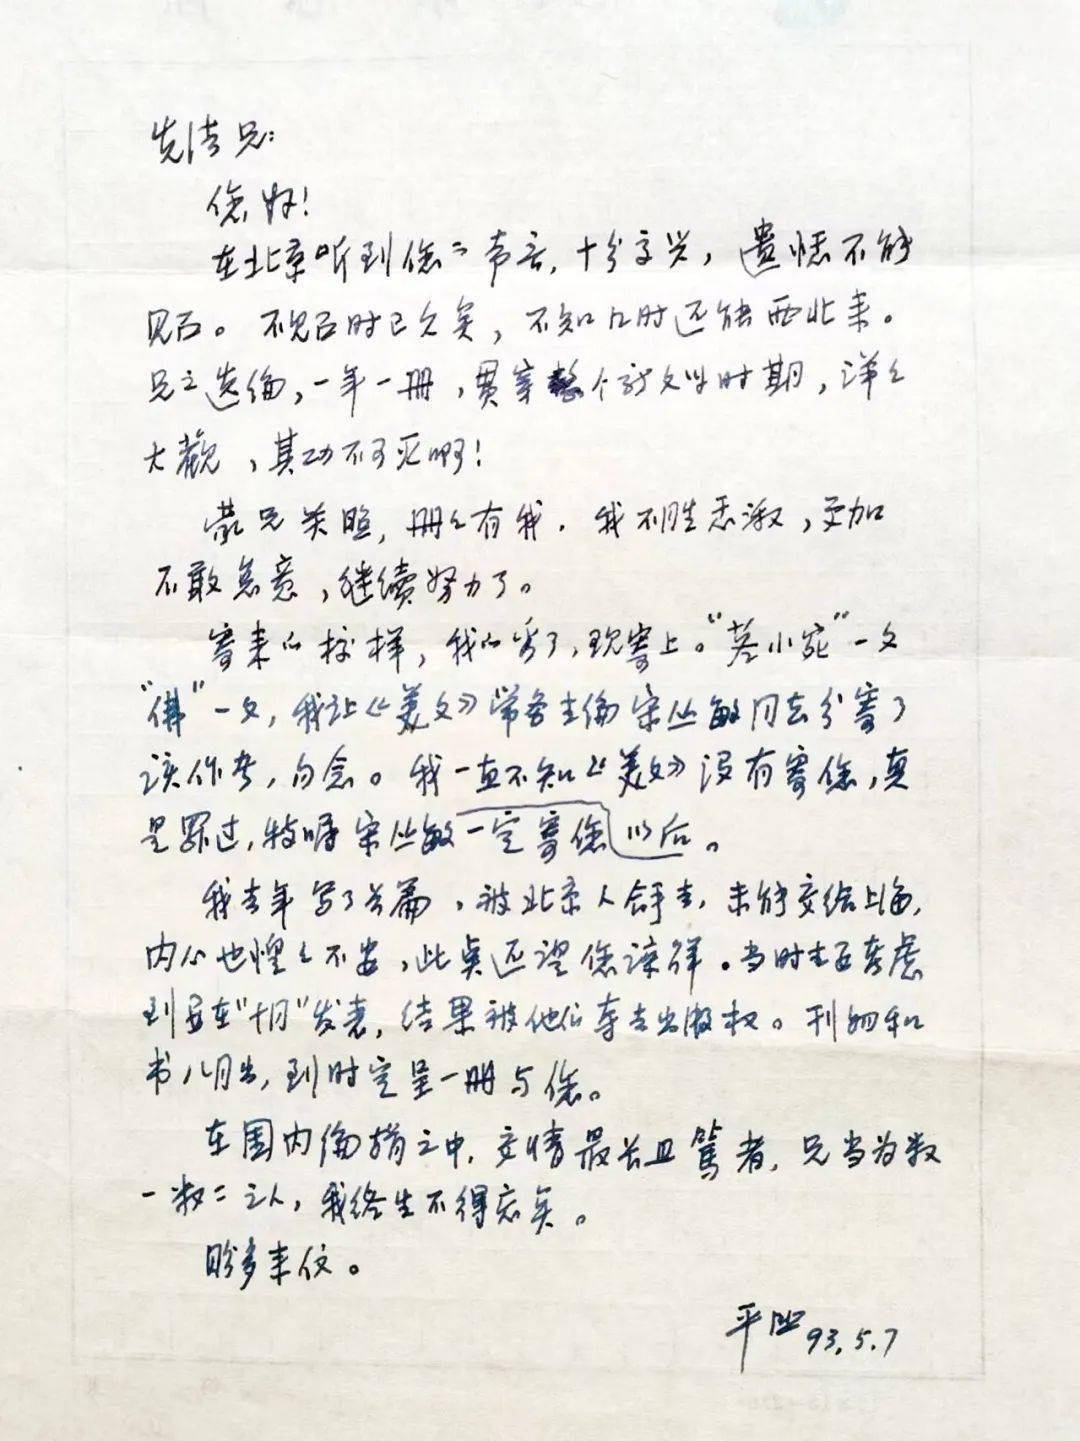 先法兄:
您好!
在北京听到您声音,十分高兴,遗憾不能
见面。不见面时已久矣,不知几时还能西北来。
兄之选编,一年一册,贯穿整个新文学时期,洋々
大觀,其功不可灭啊!
蒙兄关照,册々有我。我不胜感激,更加
不敢怠意,继续努力了。
寄来的校样,我的看了,现寄上。"〃小宛"一文
"佛"一文,我让《美文》常务主编宋丛敏同志分寄了
该作者,勿念。我一直不知《美文》没有寄您,真
是罪过,特嘱宋丛敏一定寄您以后。
我去年写了长篇,被北京人拿去,未能交给上海,
内心也惶々不安,此点还望您谅解。当时主要考虑
到要在"十月"发表,结果被他们夺去出版权。刊物和
书八月出,到时定呈一册与您。
在国内编辑之中,交情最长且笃者,兄当为数
一数二之人,我终生不得忘矣。
盼多来信。
平凹 93.5.7